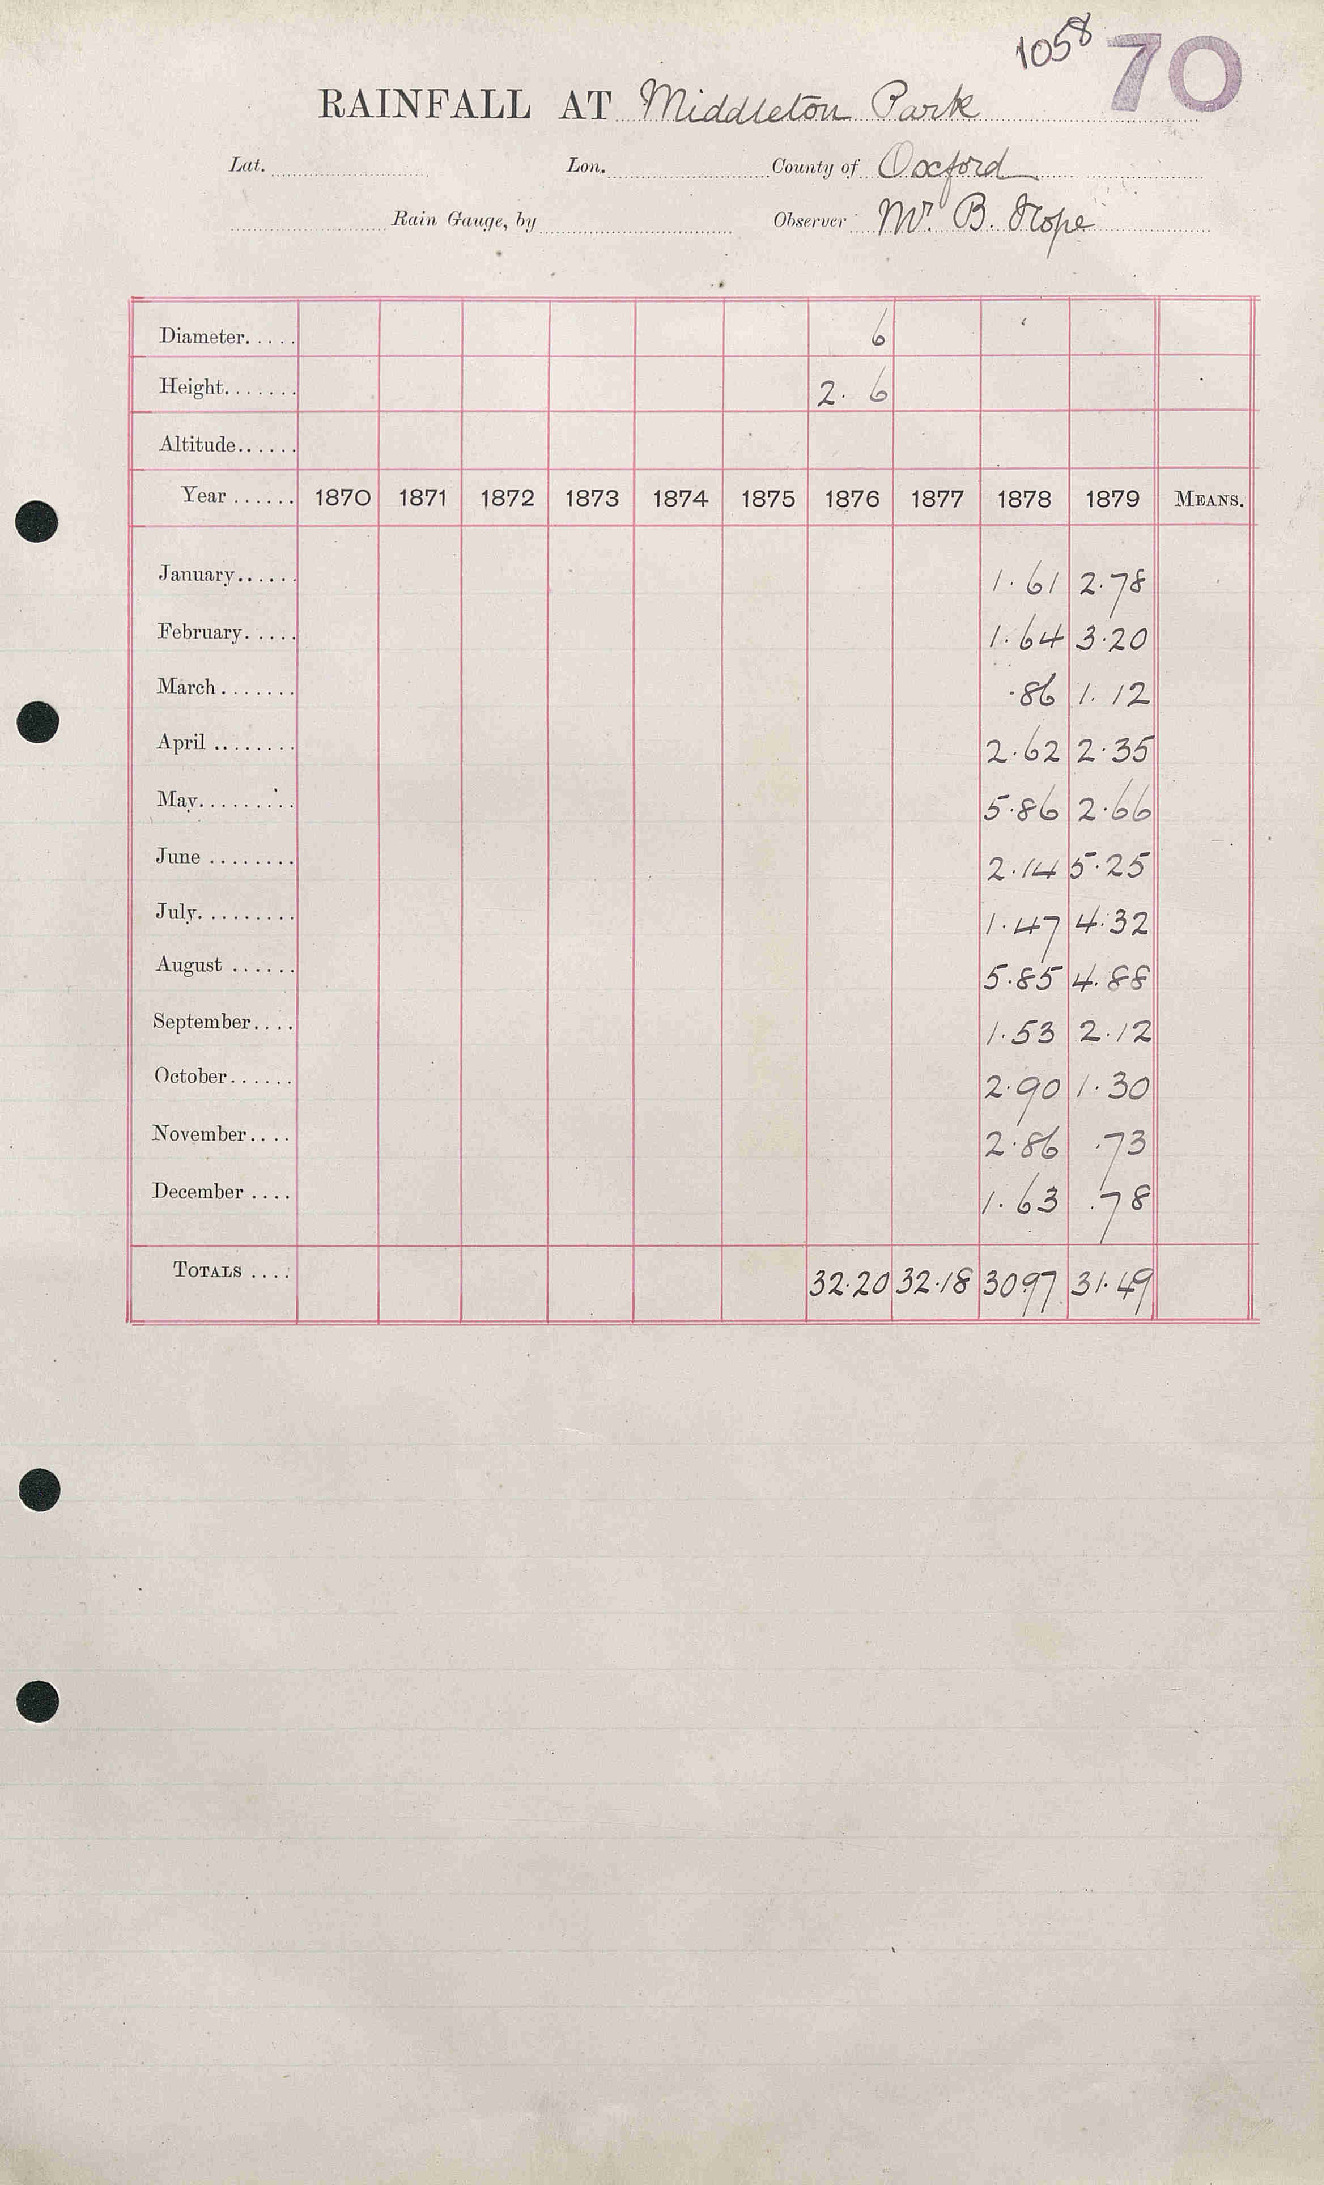 1058 70
RAINFALL AT Middleton Park
Lat. Lon. County of Oxford
Rain Gauge, by Observer Mr. B. Hope
Diameter..... 6
Height....... 2. 6
Altitude......
Year ...... 1870 1871 1872 1873 1874 1875 1876 1877 1878 1879 MEANS.
January...... 1.61 2.78
February..... 1.64 3.20
March....... .86 1.12
April ........ 2.62 2.35
May......... 5.86 2.66
June ........ 2.14 5.25
July......... 1.47 4.32
August ...... 5.85 4.88
September.... 1.53 2.12
October...... 2.90 1.30
November.... 2.86 .73
December .... 1.63 .78
TOTALS .... 32.20 32.18 30.97 31.49